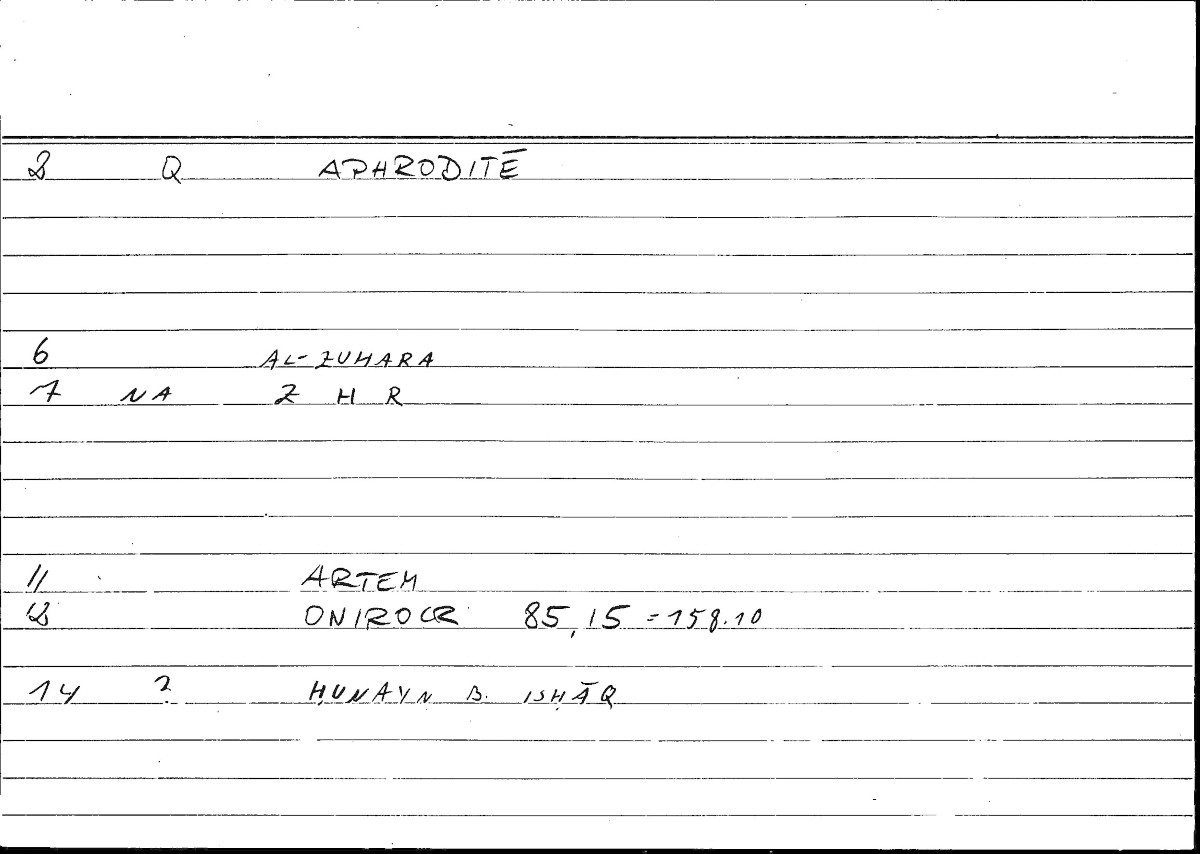 2 Q APHRODITĒ
6 AL-ZUHARA
7 NA Z H R
11 ARTEM
12 ONIROCR 85,15 = 158.10
14 ? ḤUNAYN B. ISḤĀQ